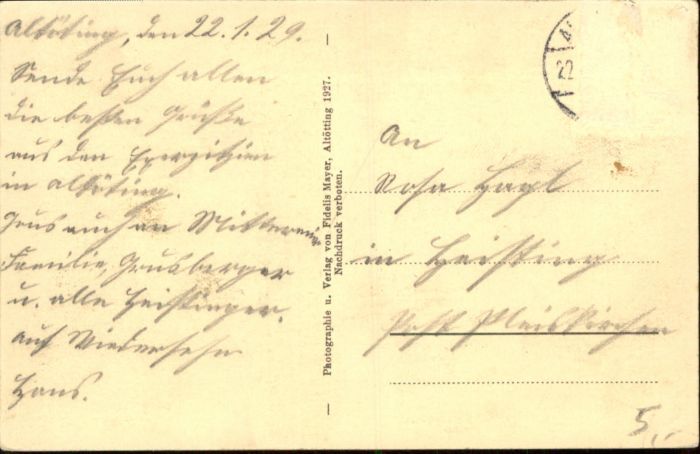 Altötting, den 22.1.29.
Sende Euch allen
die besten Grüße
aus den Exerzitien
in Altötting.
Grus auch an
Familie, Grusberger
u. alle Heistinger.
auf Wiedersehn
Hans.
Photographie u. Verlag von Fidelis Mayer, Altötting 1927.
Nachdruck verboten.
22
An
Rosa Hagl
in Heisting
Post Pleiskirchen
5,-